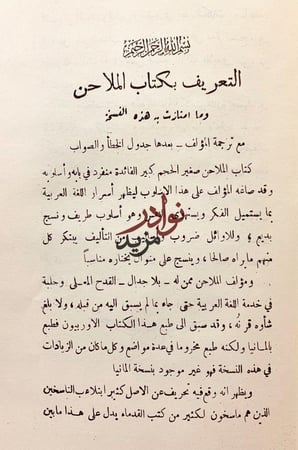 بسم الله الرحمن الرحيم
التعريف بكتاب الملاحن
وما امتازت به هذه النسخة
مع ترجمة المؤلف - بعدها جدول الخطأ والصواب
كتاب الملاحن صغير الحجم كبير الفائدة منفرد في بابه وأسلوبه
وقد صاغه المؤلف على هذا الاسلوب ليظهر أسرار اللغة العربية
بما يستميل الفكر ويستهوي وهو أسلوب طريف ونسج
بديع وللاوائل ضروب من التأليف يبتكر كل
منهم ما يراه صالحا، وينسج على منوال يختاره مناسبا
ومؤلف الملاحن ممن له - بلا جدال - القدح المعلى وحلبة
في خدمة اللغة العربية حتى جاء بما لم يسبق اليه من قبله، ولا بلغ
شأوه قرنه، وقد سبق الى طبع هذا الكتاب الاوربيون فطبع
بالمانيا ولكنه طبع مخروما في عدة مواضع وكل ما كان من الزيادات
في هذه النسخة فهو غير موجود بنسخة المانيا
ويظهر انه وقع فيه تحريف عن الاصل كثير ابتلاء بالناسخين
الذين هم ماسخون لكثير من كتب القدماء يدل على هذا ما بين
نوادر
مزيد